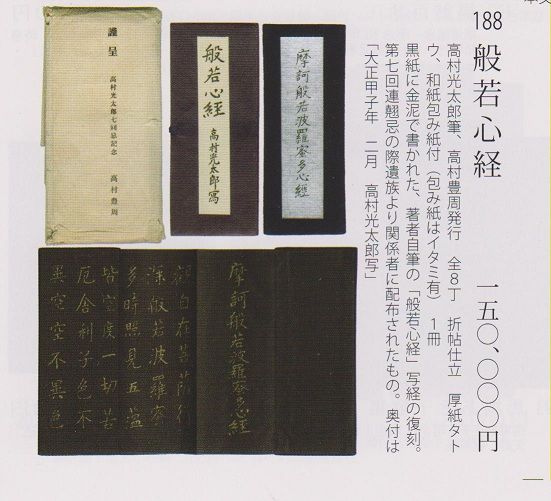 188 般若心経 一五〇、〇〇〇円
高村光太郎筆、高村豊周発行 全８丁 折帖仕立 厚紙タト
ウ、和紙包み紙付（包み紙はイタミ有） １冊
黒紙に金泥で書かれた、著者自筆の「般若心経」写経の復刻。
第七回連翹忌の際遺族より関係者に配布されたもの。奥付は
「大正甲子年 二月 高村光太郎写」
摩訶般若波羅蜜多心経
般若心経 高村光太郎寫
謹呈
高村光太郎七回忌記念
高村豊周
摩訶般若波羅蜜多心経
観自在菩薩行
深般若波羅蜜
多時照見五蘊
皆空度一切苦
厄舎利子色不
異空空不異色